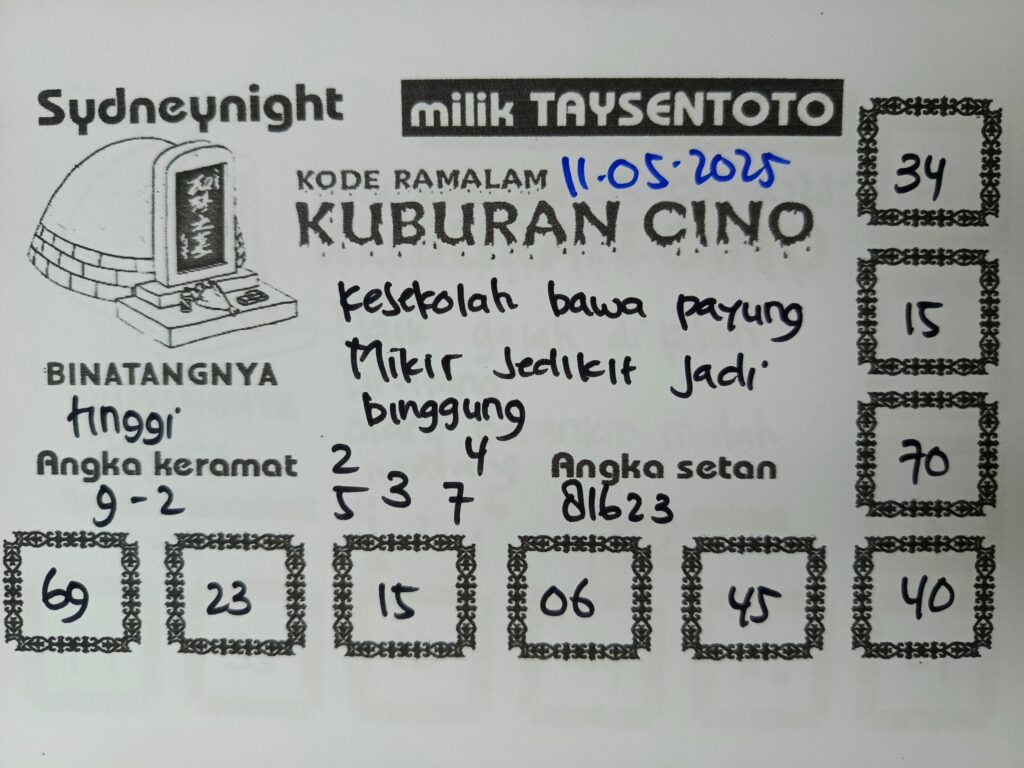 Sydneynight
milik TAYSENTOTO
KODE RAMALAM 11.05.2025
KUBURAN CINO
kesekolah bawa payung
Mikir sedikit jadi
binggung
BINATANGNYA
tinggi
Angka keramat
9-2
2 4
5 3 7
Angka setan
81623
34
15
70
69 23 15 06 45 40